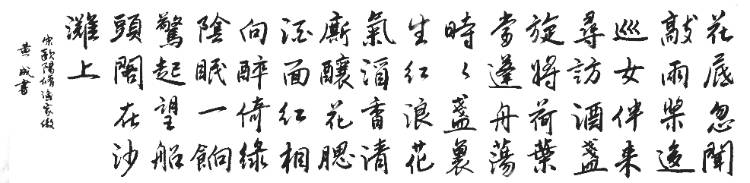 花底忽聞
敲兩槳逡
巡女伴來
尋訪酒盞
旋將荷葉
當蓮舟蕩
時々盞裏
生紅浪花
氣酒香清
廝釀花腮
酒面紅相
向醉倚綠
陰眠一餉
驚起望船
頭閣在沙
灘上
宋歐陽脩漁家傲
黃成書